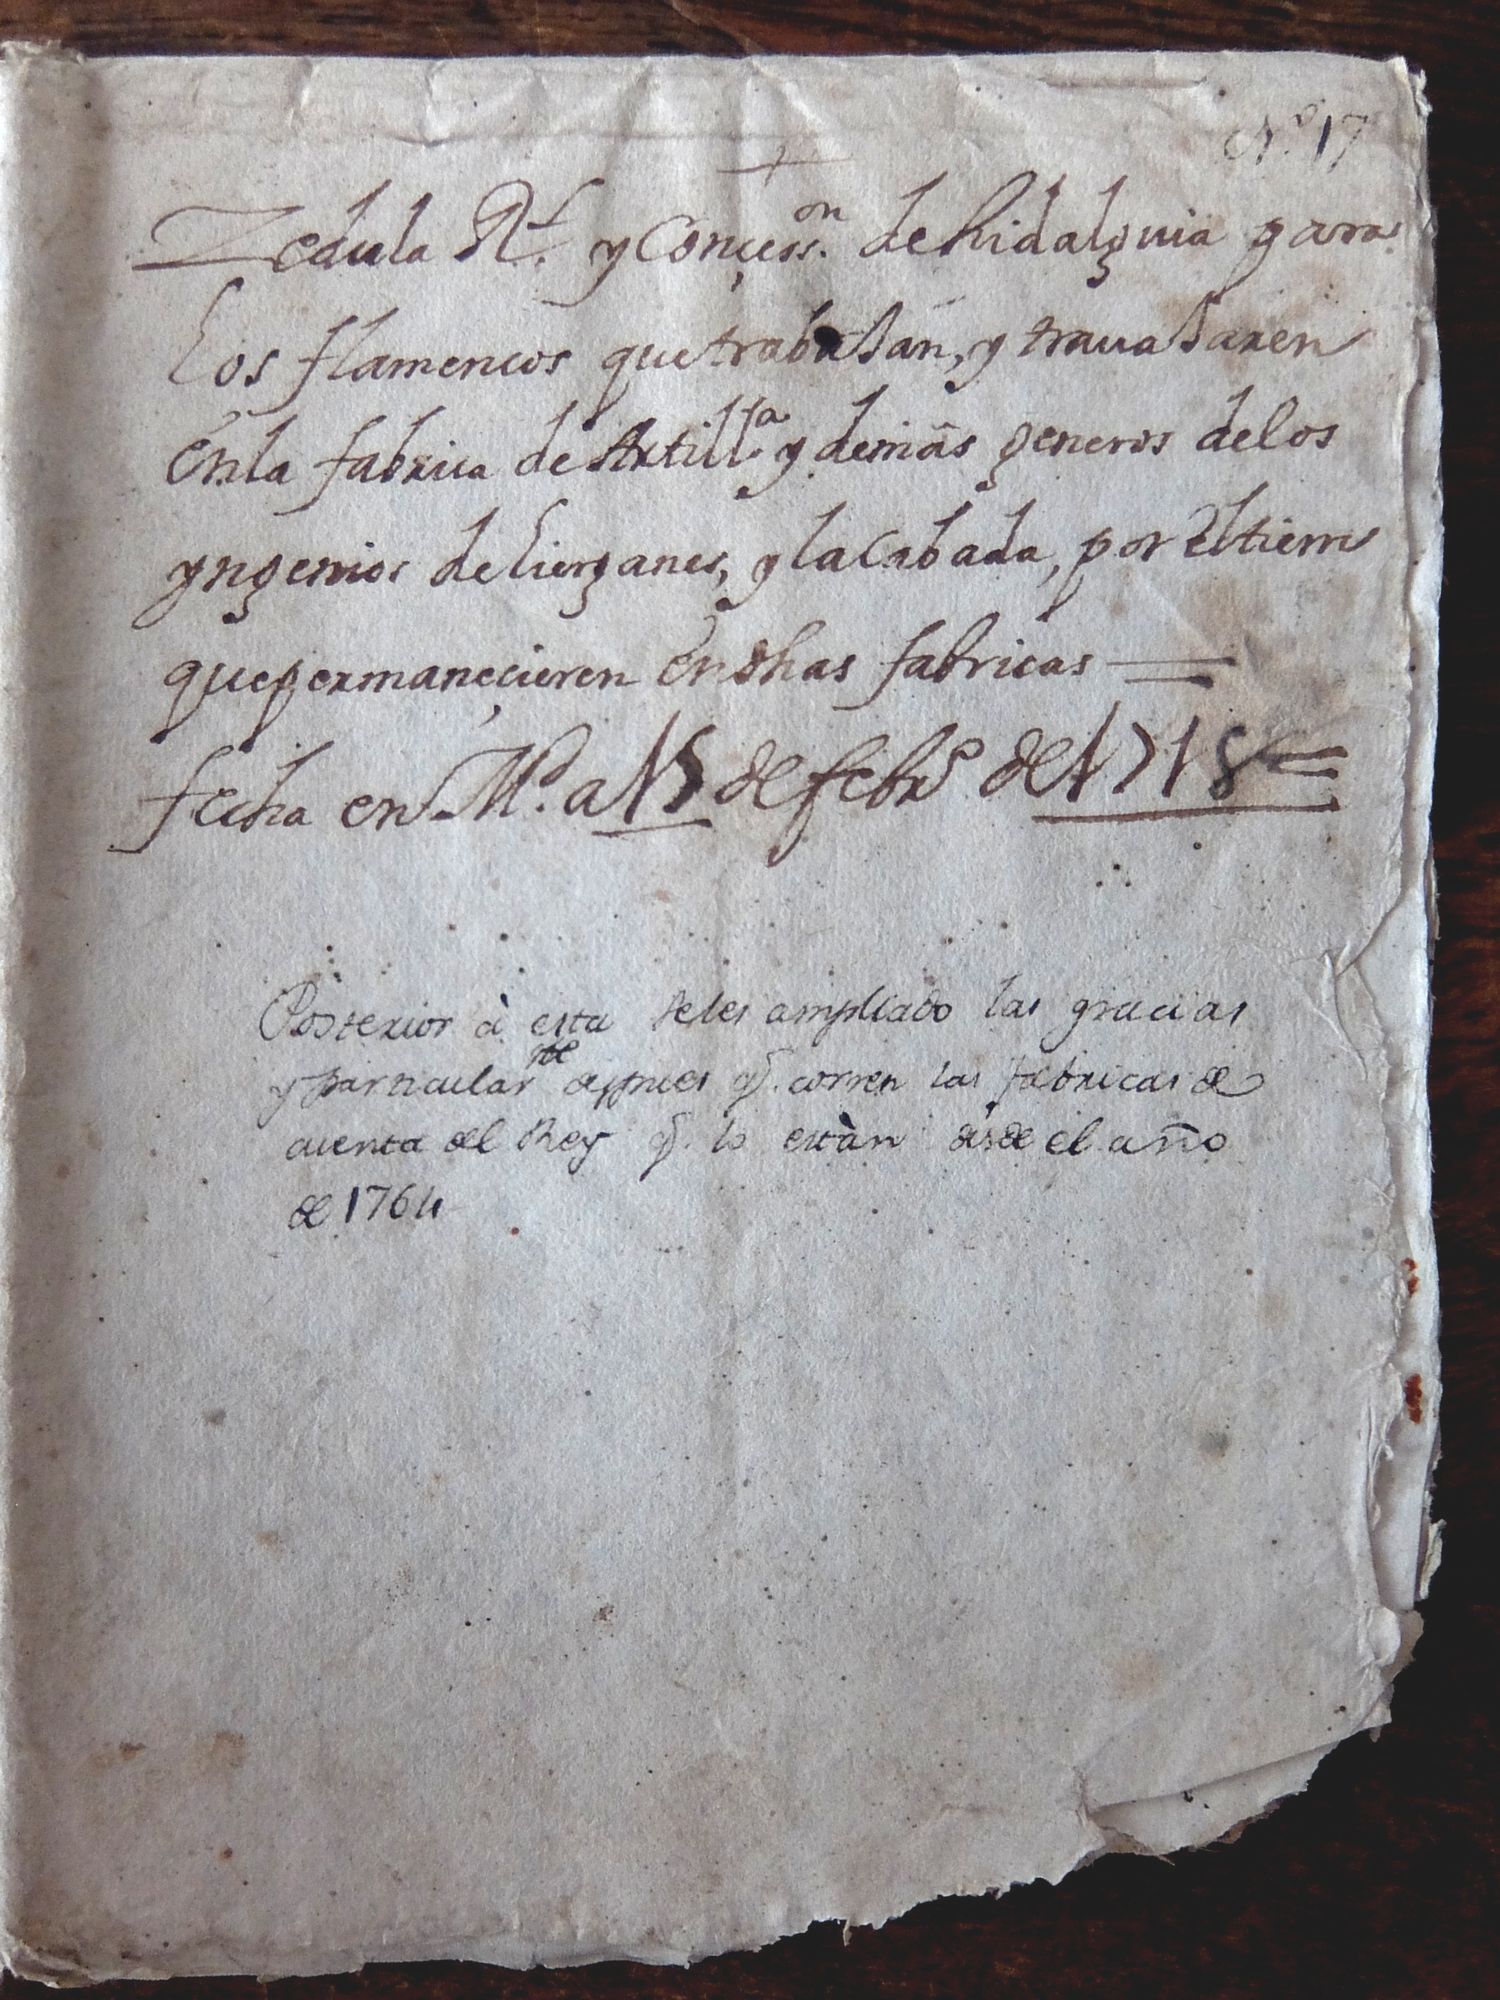 Nº 17
+
Zedula Rl. y Conçess.on de hidalguia para
los flamencos que trabaJan, y trauaJaren
en la fabrica de Artill.a y demâs generos de los
yngenios de Lierganes, y la Cabada, por el tiempo
que permaneçieren en dhas fabricas =
fecha en M.d a 15 de febr.o de 1718 =
Posterior à esta se les ampliado las gracias
y particular.te despues q.e corren las fabricas de
cuenta del Rey q.e lo estàn desde el año
de 1764